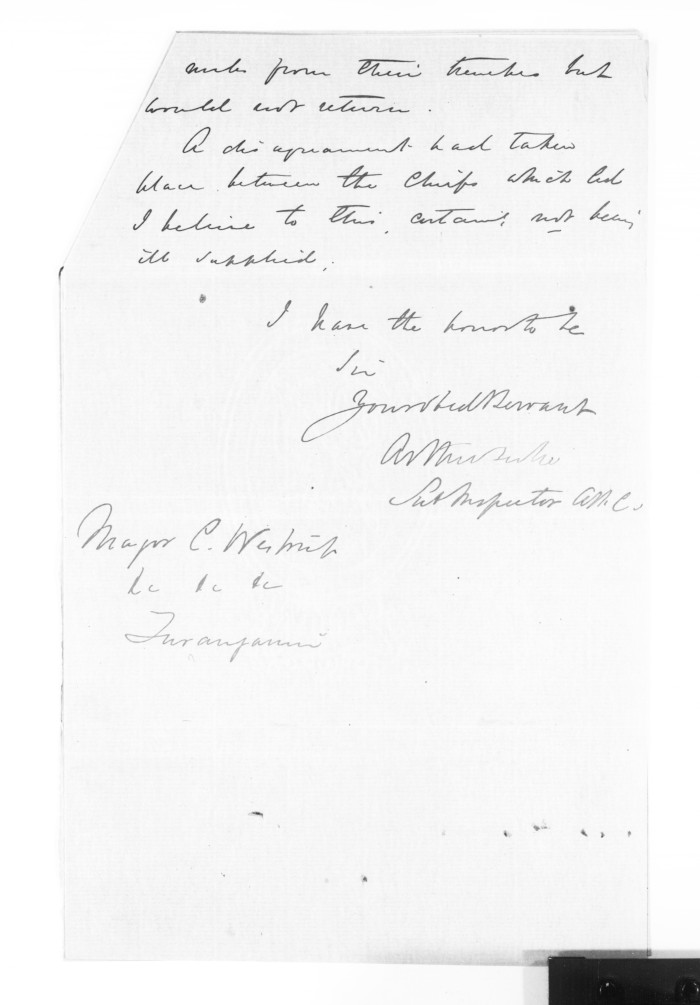 miles from their trenches but
would not return.
A disagreement had taken
place between the Chiefs which led
I believe to this, certainly not being
ill supplied,
I have the honor to be
Sir
Your Obed Servant
Arthur Tuke
Sub Inspector A.C.
Major C. Westrup
&c &c &c
Turanganui